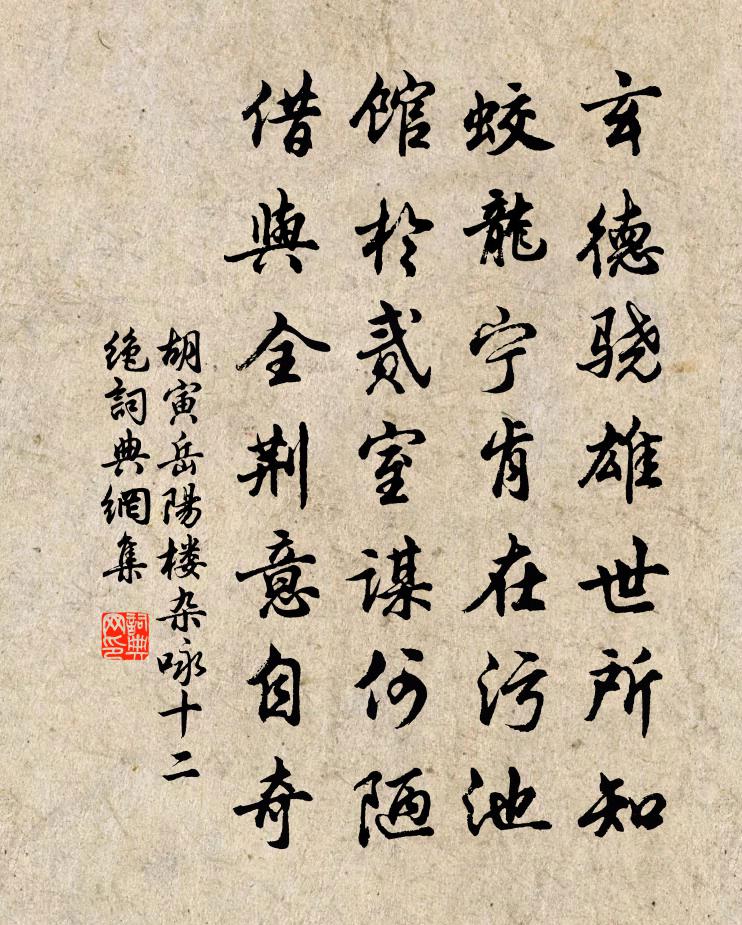 玄德骁雄世所知
蛟龍宁肯在污池
馆於贰室谋何陋
借與全荆意自奇
胡寅岳陽楼杂咏十二
绝詞典網集
詞典
网印